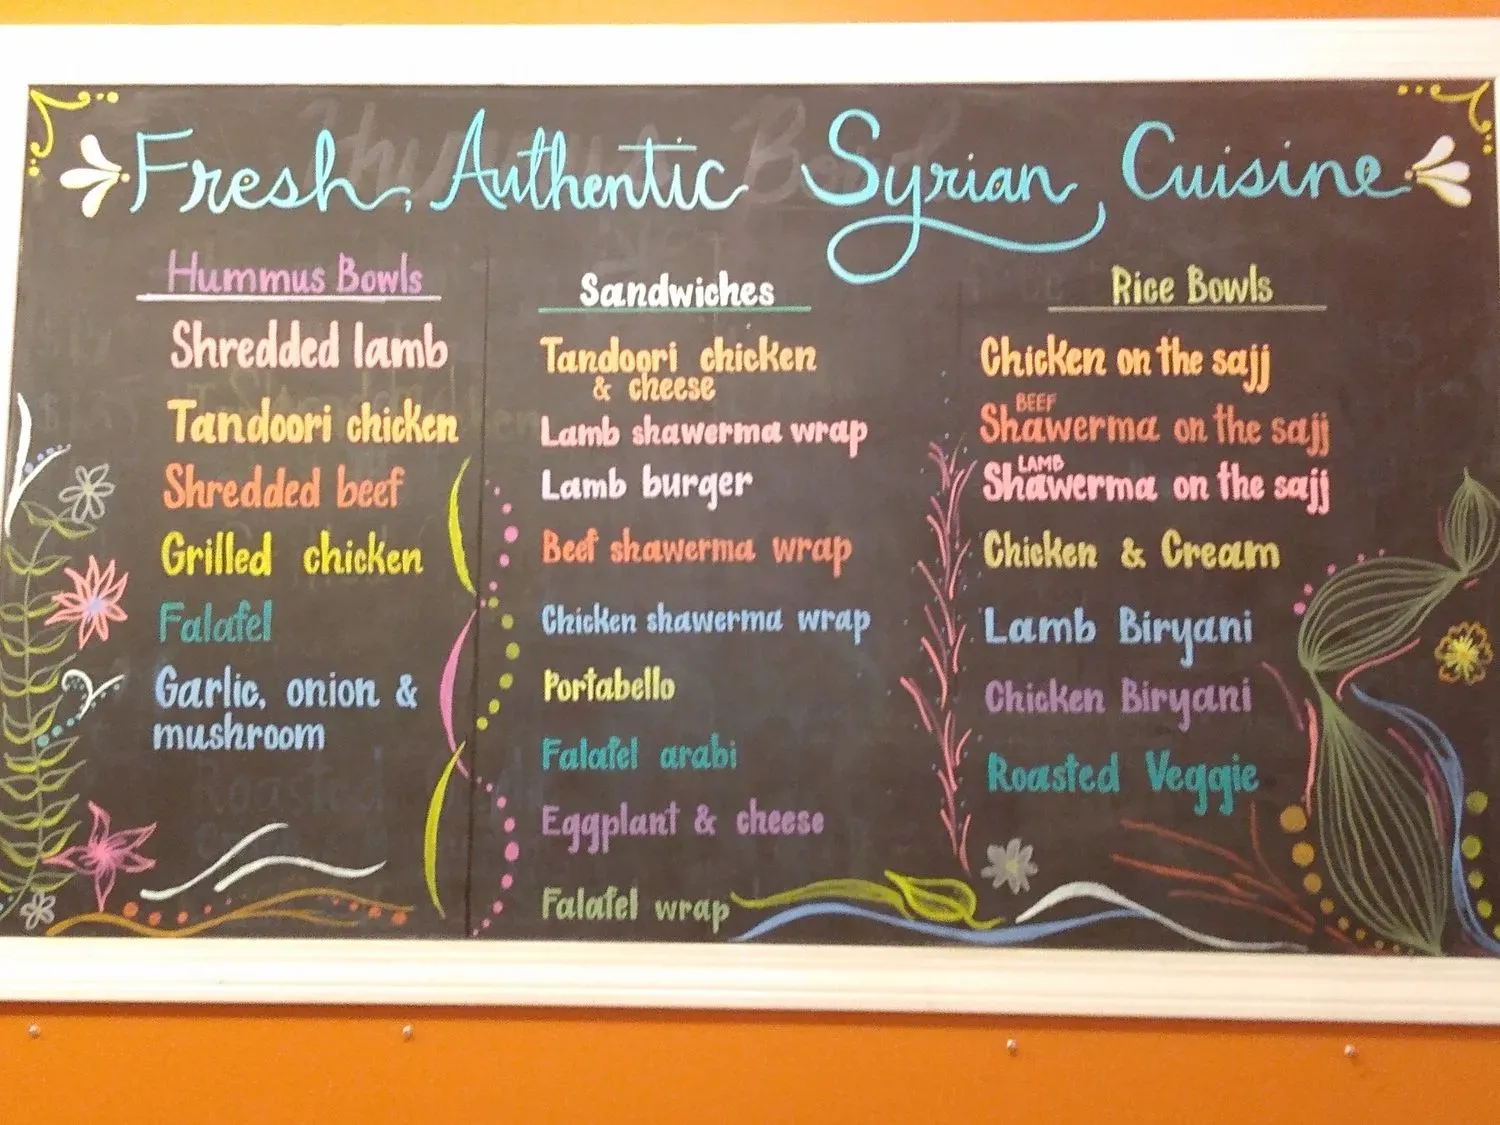 Fresh, Authentic Syrian Cuisine
Hummus Bowls
Shredded lamb
Tandoori chicken
Shredded beef
Grilled chicken
Falafel
Garlic, onion &
mushroom
Sandwiches
Tandoori chicken
& cheese
Lamb shawerma wrap
Lamb burger
Beef shawerma wrap
Chicken shawerma wrap
Portabello
Falafel arabi
Eggplant & cheese
Falafel wrap
Rice Bowls
Chicken on the sajj
BEEF
Shawerma on the sajj
LAMB
Shawerma on the sajj
Chicken & Cream
Lamb Biryani
Chicken Biryani
Roasted Veggie